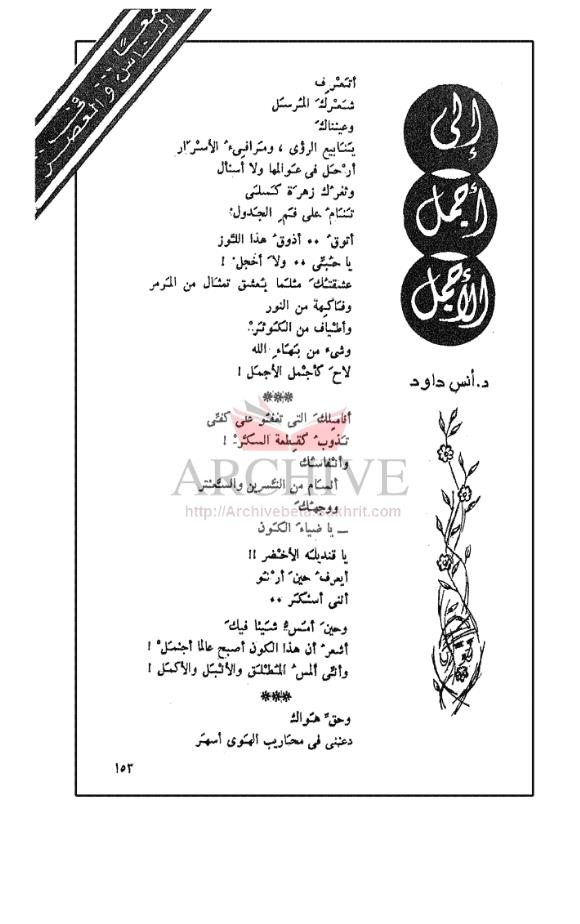 معًا .. في
الناس والعصر
إلى
أجمل
الأجمل
د. أنس داود
أتعرف
شعرك المرسل
وعيناك
ينابيع الرؤى ، ومرافىء الأسرار
أرحل في عوالمها ولا أسأل
وثغرك زهرة كسلى
تنام على فم الجدول
أتوق .. أذوق هذا اللوز
يا حبي .. ولا أخجل !
عشقتك مثلما يعشق تمثال من المرمر
وفاكهة من النور
وأطياف من الكوثر
وشيء من بهاء الله
لاح كأجمل الأجمل !
***
أناملك التي تغفو على كفي
تذوب كقطعة السكر !
وأنفاسك
أنسام من النسرين والسعتر
ووجهك
ــ يا ضياء الكون
يا قنديله الأخضر !!
أيعرف حين أرنو
أنني أسكر ..
وحين أمس شيئا فيك
أشعر أن هذا الكون أصبح عالما أجمل !
وأني ألمس المطلق والأنبل والأكمل !
***
وحق هواك
دعني في محاريب الهوى أسهر
١٥٣
ARCHIVE
http://Archivebeta.Sakhrit.com